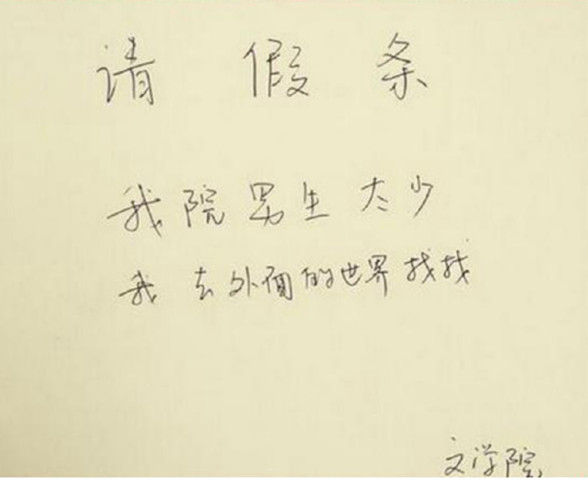 请假条
我院男生太少
我去外面的世界找找
文学院